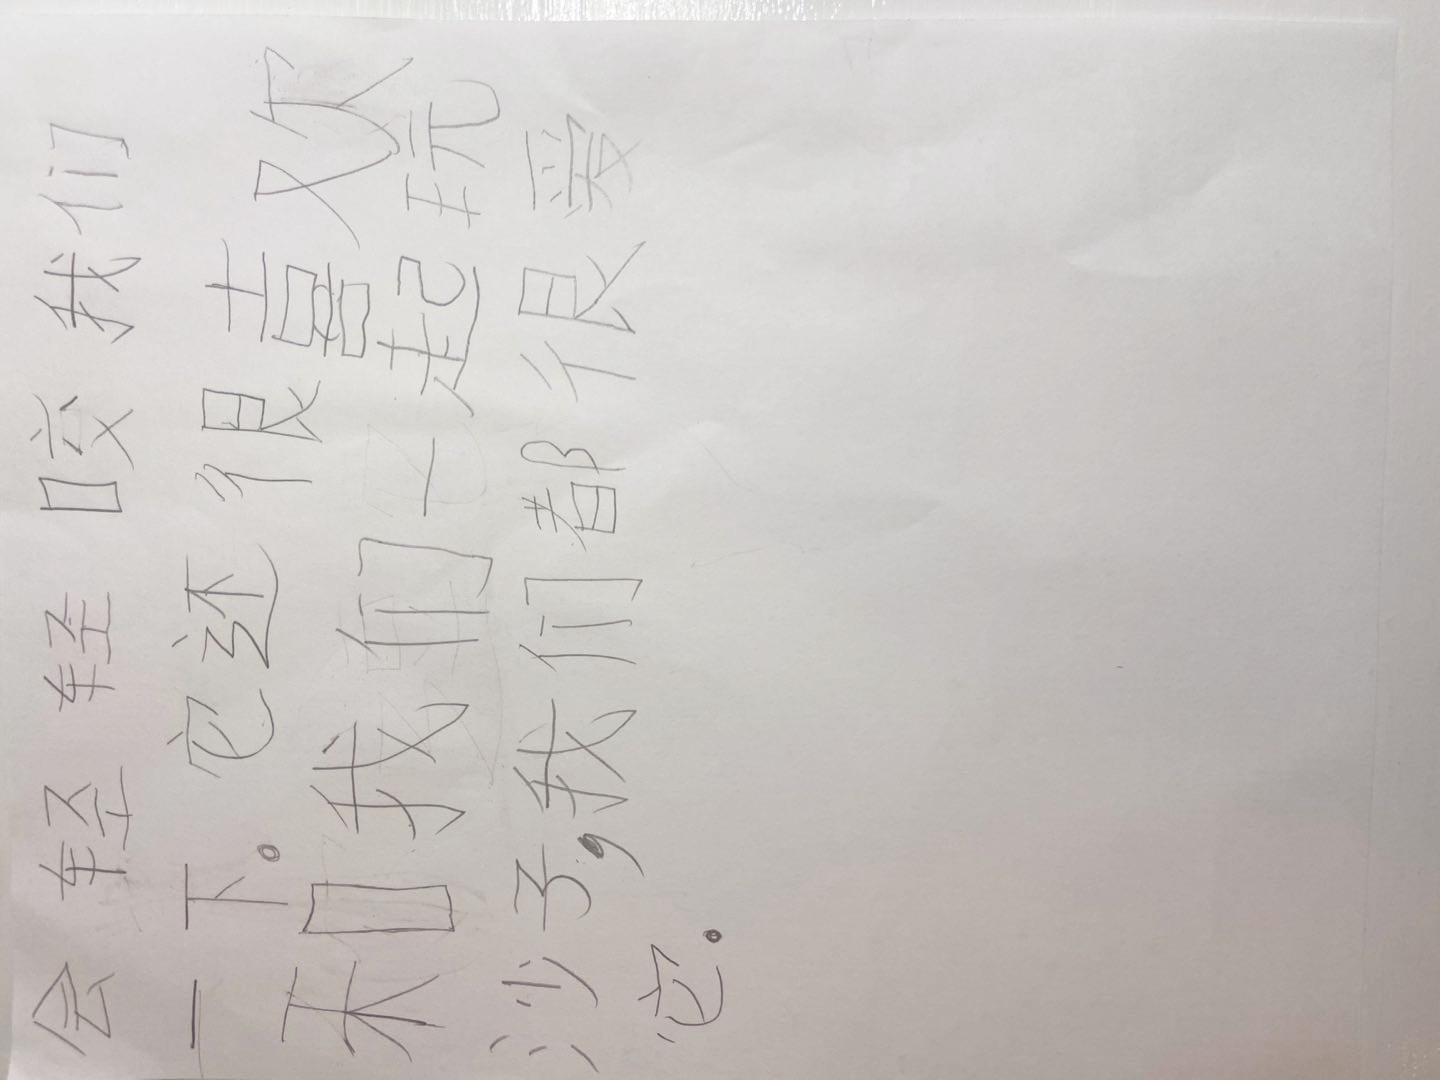 会轻轻咬我们
一下。它还很喜欢
和我们一起玩
沙子,我们都很爱
它.